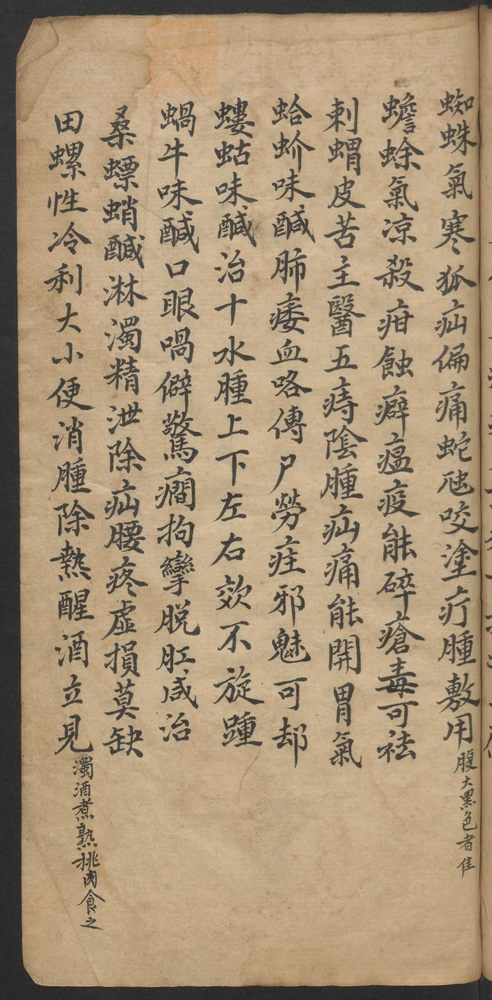 蜘蛛氣寒狐疝偏痛蛇虺咬塗疔腫敷用腹大黑色者佳
蟾蜍氣凉殺疳蝕癖瘟疫能碎瘡毒可祛
刺蝟皮苦主醫五痔陰腫疝痛能開胃氣
蛤蚧味鹹肺痿血咯傳尸勞疰邪魅可却
螻蛄味鹹治十水腫上下左右効不旋踵
蝸牛味鹹口眼喎僻驚癎拘攣脫肛咸治
桑螵蛸鹹淋濁精泄除疝腰疼虛損莫缺
田螺性冷利大小便消腫除熱醒酒立見濁酒煮熟挑肉食之